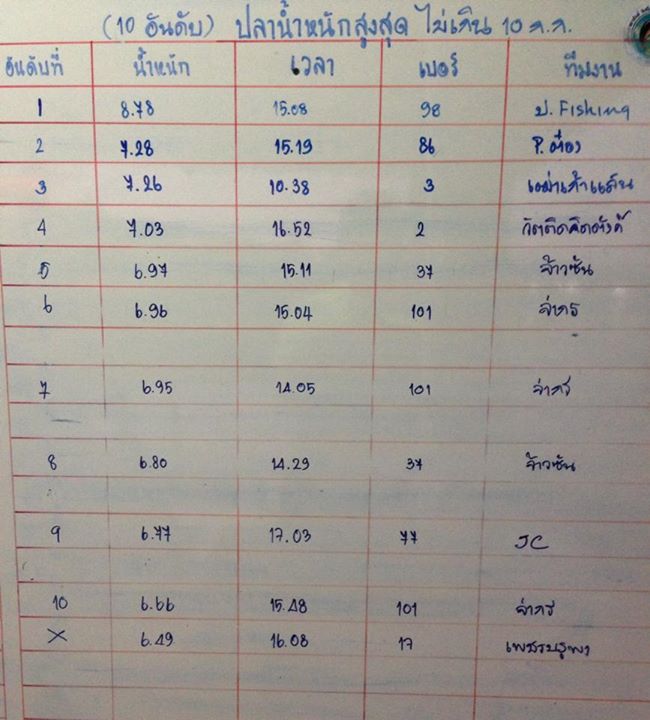 (10 อันดับ) ปลาน้ำหนักสูงสุด ไม่เกิน 10 ก.ก.
อันดับที่ น้ำหนัก เวลา เบอร์ ทีมงาน
1 8.78 15.08 98 ป. Fishing
2 7.28 15.19 86 P. ต๋อง
3 7.26 10.38 3
4 7.03 16.52 2
5 6.97 15.11 37 จ้าวซัน
6 6.96 15.04 101
7 6.95 14.05 101
8 6.80 14.29 37 จ้าวซัน
9 6.77 17.03 77 JC
10 6.66 15.48 101
X 6.49 16.08 17